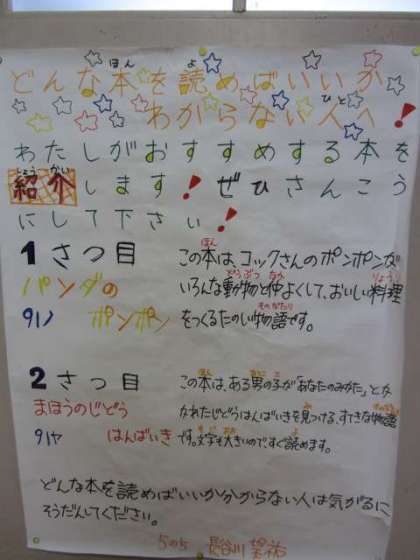 どんな本を読めばいいか
わからない人へ!
わたしがおすすめする本を
紹介します!ぜひさんこう
にして下さい!
1さつ目
パンダの
91ノ ポンポン
この本は、コックさんのポンポンが
いろんな動物と仲よくして、おいしい料理
をつくるたのしい物語です。
2さつ目
まほうのじどう
91ヤ はんばいき
この本は、ある男の子が「あなたのみかた」とか
かれたじどうはんばいきを見つける、すてきな物語
です。文字も大きいので、すぐ読めます。
どんな本を読めばいいか分からない人は気がるに
そうだんしてください。
5の5 長谷川 望祐